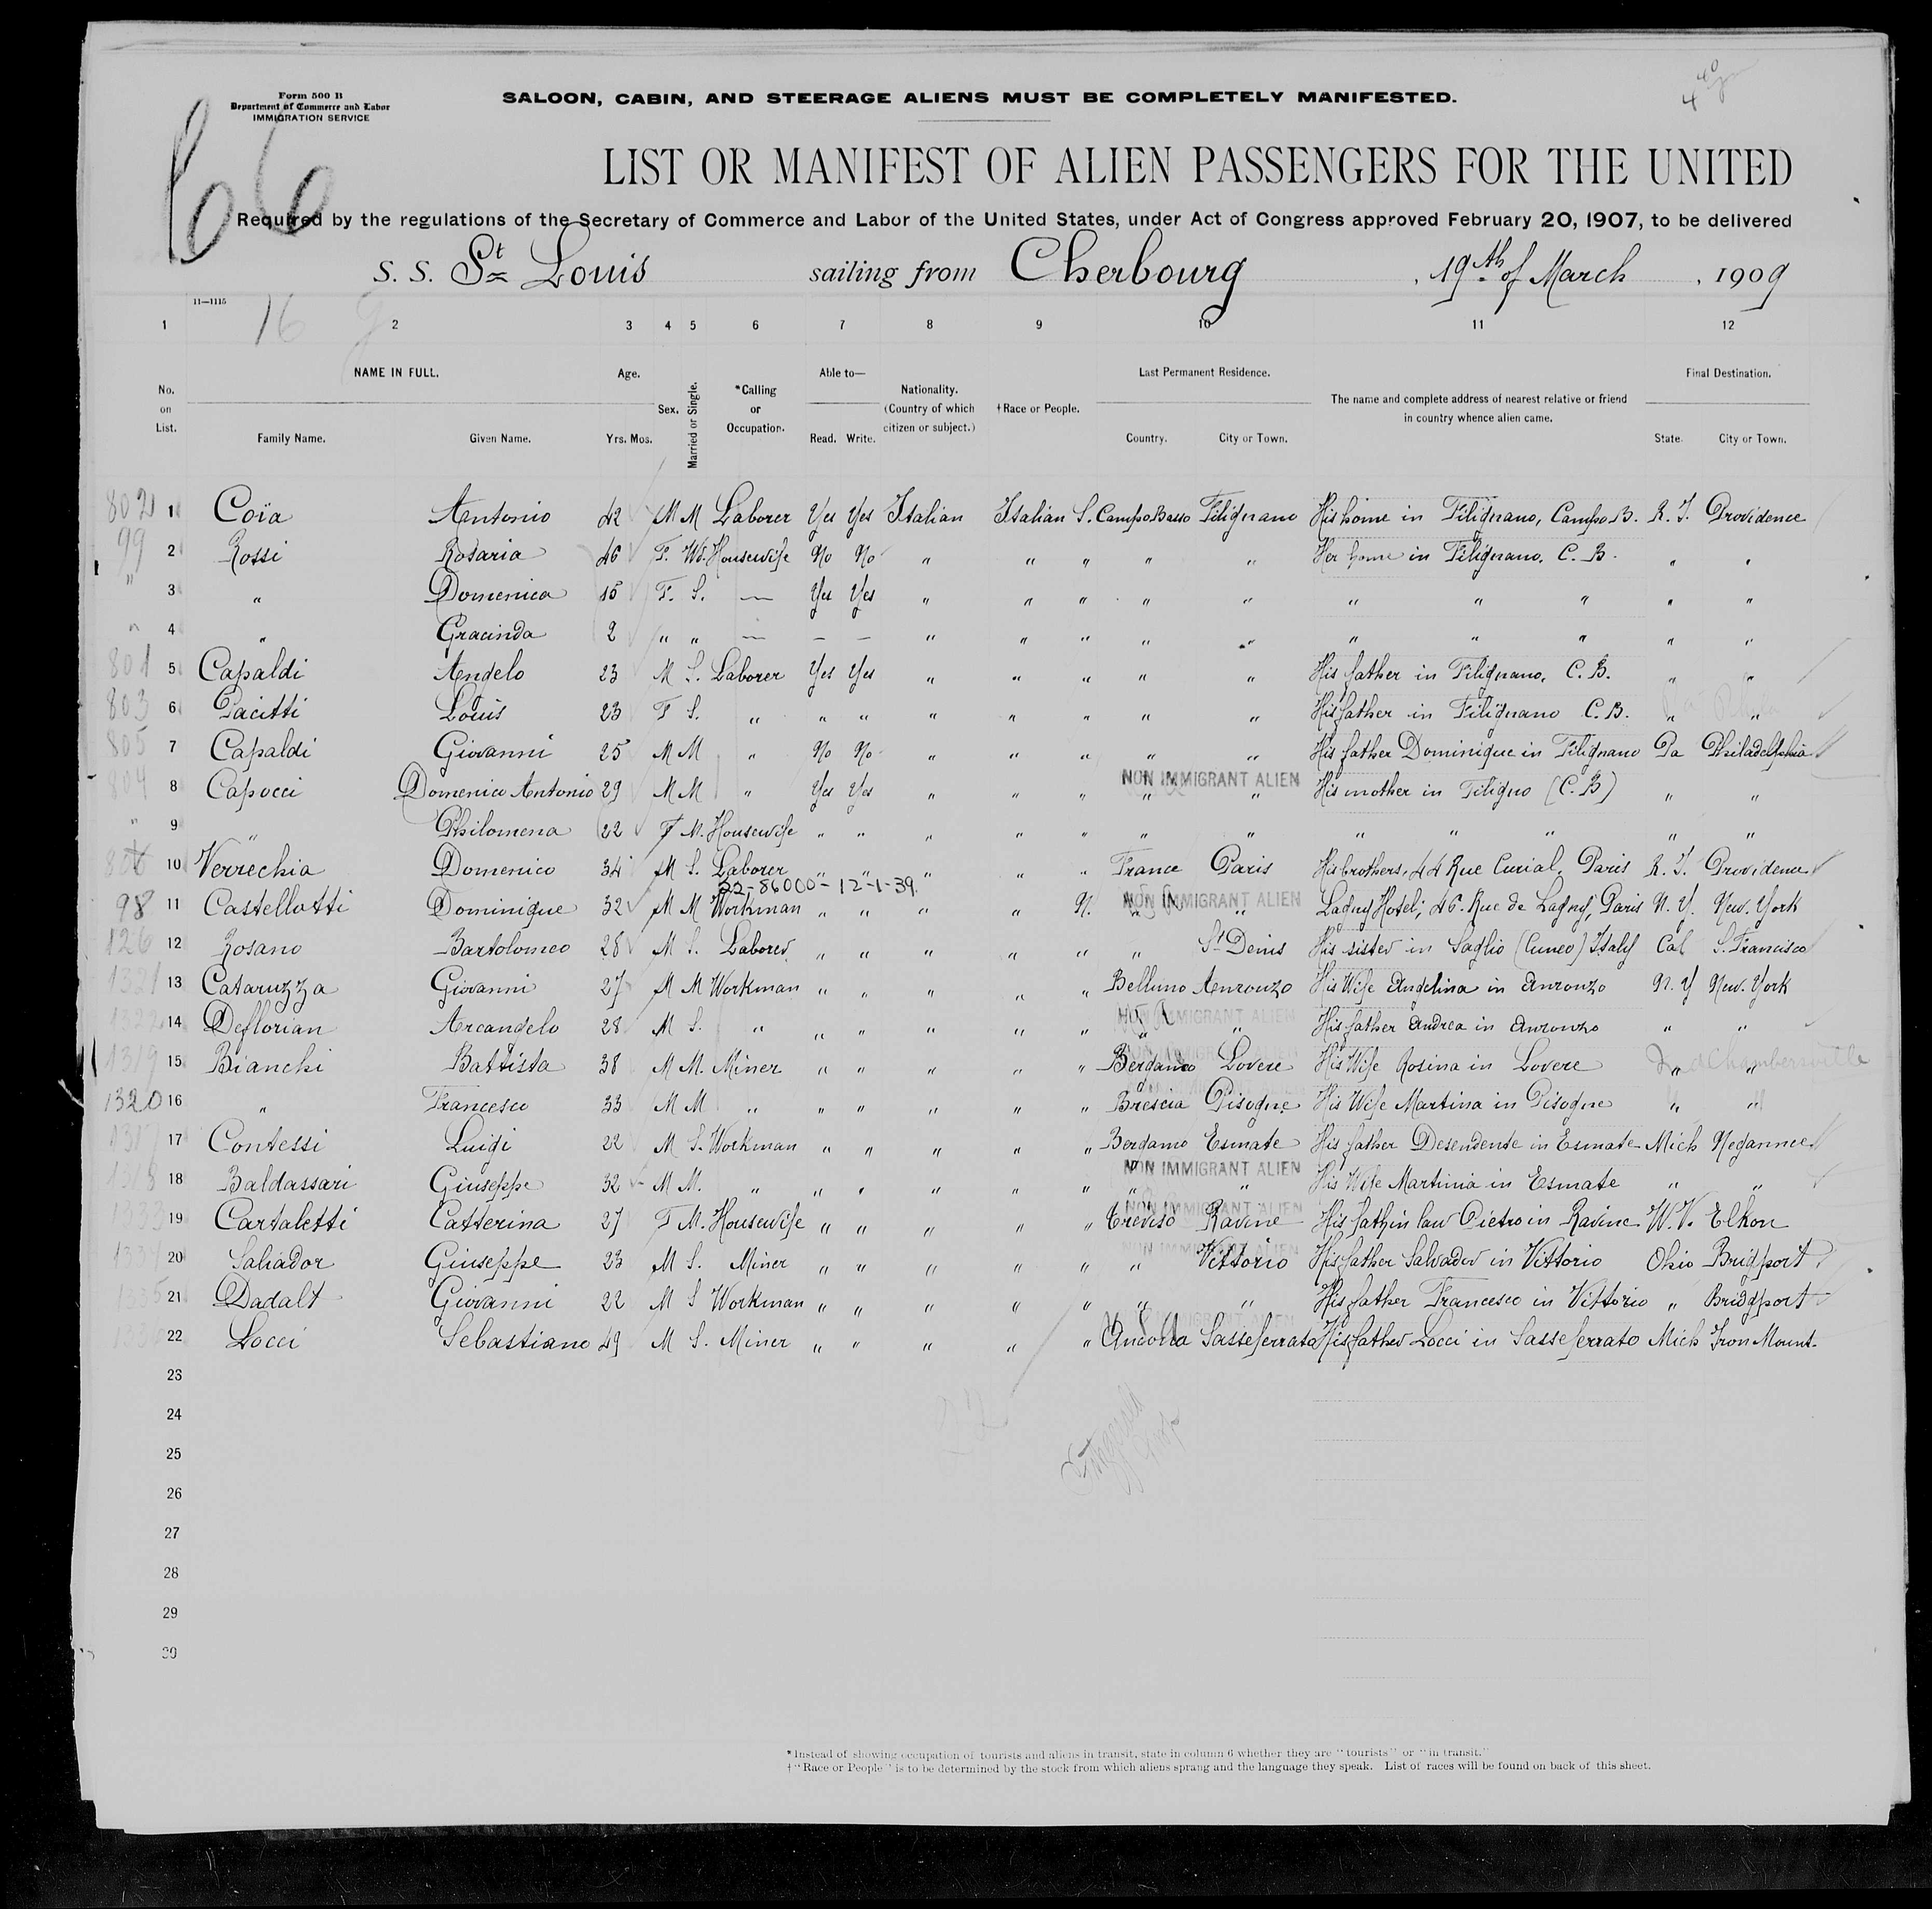 Form 500 B
Department of Commerce and Labor
IMMIGRATION SERVICE
SALOON, CABIN, AND STEERAGE ALIENS MUST BE COMPLETELY MANIFESTED.
66
LIST OR MANIFEST OF ALIEN PASSENGERS FOR THE UNITED
Required by the regulations of the Secretary of Commerce and Labor of the United States, under Act of Congress approved February 20, 1907, to be delivered
S. S. St Louis sailing from Cherbourg, 19th of March, 1909
11—1115
16
1 2 3 4 5 6 7 8 9 10 11 12
No. on List. NAME IN FULL. Family Name. Given Name. Age. Yrs. Mos. Sex. Married or Single. *Calling or Occupation. Able to— Read. Write. Nationality. (Country of which citizen or subject.) †Race or People. Last Permanent Residence. Country. City or Town. The name and complete address of nearest relative or friend in country whence alien came. Final Destination. State. City or Town.
802 1 Coïa Antonio 42 M M Laborer Yes Yes Italian Italian S. Campo Basso Filignano His home in Filignano, Campo B. R. I. Providence
99 2 Rossi Rosaria 46 F. Wd. Housewife No No " " " " " Her home in Filignano. C. B. " "
" 3 " Domenica 15 F. S. — Yes Yes " " " " " " " " " "
" 4 " Gracinda 2 " " — — — " " " " " " " " " "
801 5 Capaldi Angelo 23 M S. Laborer Yes Yes " " " " " His father in Filignano. C. B. " "
803 6 Pacitti Louis 23 F S. " " " " " " " " His father in Filignano C. B. " "
805 7 Capaldi Giovanni 25 M M " No No " " " " " His father Dominique in Filignano Pa Philadelphia
804 8 Capocci Domenico Antonio 29 M M " Yes Yes " " " NON IMMIGRANT ALIEN " " His mother in Filigno (C. B) " "
" 9 " Philomena 22 F M. Housewife " " " " " " " " " " " "
10 Verrechia Domenico 34 M S. Laborer " " " " " France Paris His brothers, 44 Rue Curial, Paris R. I. Providence
22-86000-12-1-39.
98 11 Castellotti Dominique 32 M M Workman " " " " N. NON IMMIGRANT ALIEN " " Lagny Hotel, 46. Rue de Lagny, Paris N. Y. New. York
126 12 Rosano Bartolomeo 28 M S. Laborer " " " " " " St Denis His sister in Saglio (Cuneo) Italy Cal S. Francisco
1321 13 Cataruzza Giovanni 27 M M Workman " " " " " Belluno Auronzo His Wife Angelina in Auronzo N. Y New. York
1322 14 Deflorian Arcangelo 28 M S. " " " " " " NON IMMIGRANT ALIEN " " His father Andrea in Auronzo " "
1319 15 Bianchi Battista 38 M M. Miner " " " " " Bergamo Lovere His Wife Rosina in Lovere " "
1320 16 " Francesco 33 M M " " " " " " Brescia Pisogne His Wife Martina in Pisogne " "
1317 17 Contessi Luigi 22 M S. Workman " " " " " Bergamo Esmate His father Desendente in Esmate Mich Negannee
1318 18 Baldassari Giuseppe 32 M M. " " " " " " NON IMMIGRANT ALIEN " " His Wife Martinia in Esmate " "
1333 19 Cartaletti Catterina 27 F M. Housewife " " " " " NON IMMIGRANT ALIEN Treviso Ravine His fath in law Pietro in Ravine W. V. Elkon
1334 20 Saliador Giuseppe 23 M S. Miner " " " " " NON IMMIGRANT ALIEN " Vittorio His father Salvador in Vittorio Ohio Bridgport
1335 21 Dadalt Giovanni 22 M S Workman " " " " " " " His father Francesco in Vittorio " Bridgport
22 Locci Sebastiano 49 M S. Miner " " " " " Ancona Sasseferrato His father Locci in Sasseferrato Mich Iron Mount.
23
24
25
26
27
28
29
30
*Instead of showing occupation of tourists and aliens in transit, state in column 6 whether they are "tourists" or "in transit."
†"Race or People" is to be determined by the stock from which aliens sprang and the language they speak. List of races will be found on back of this sheet.